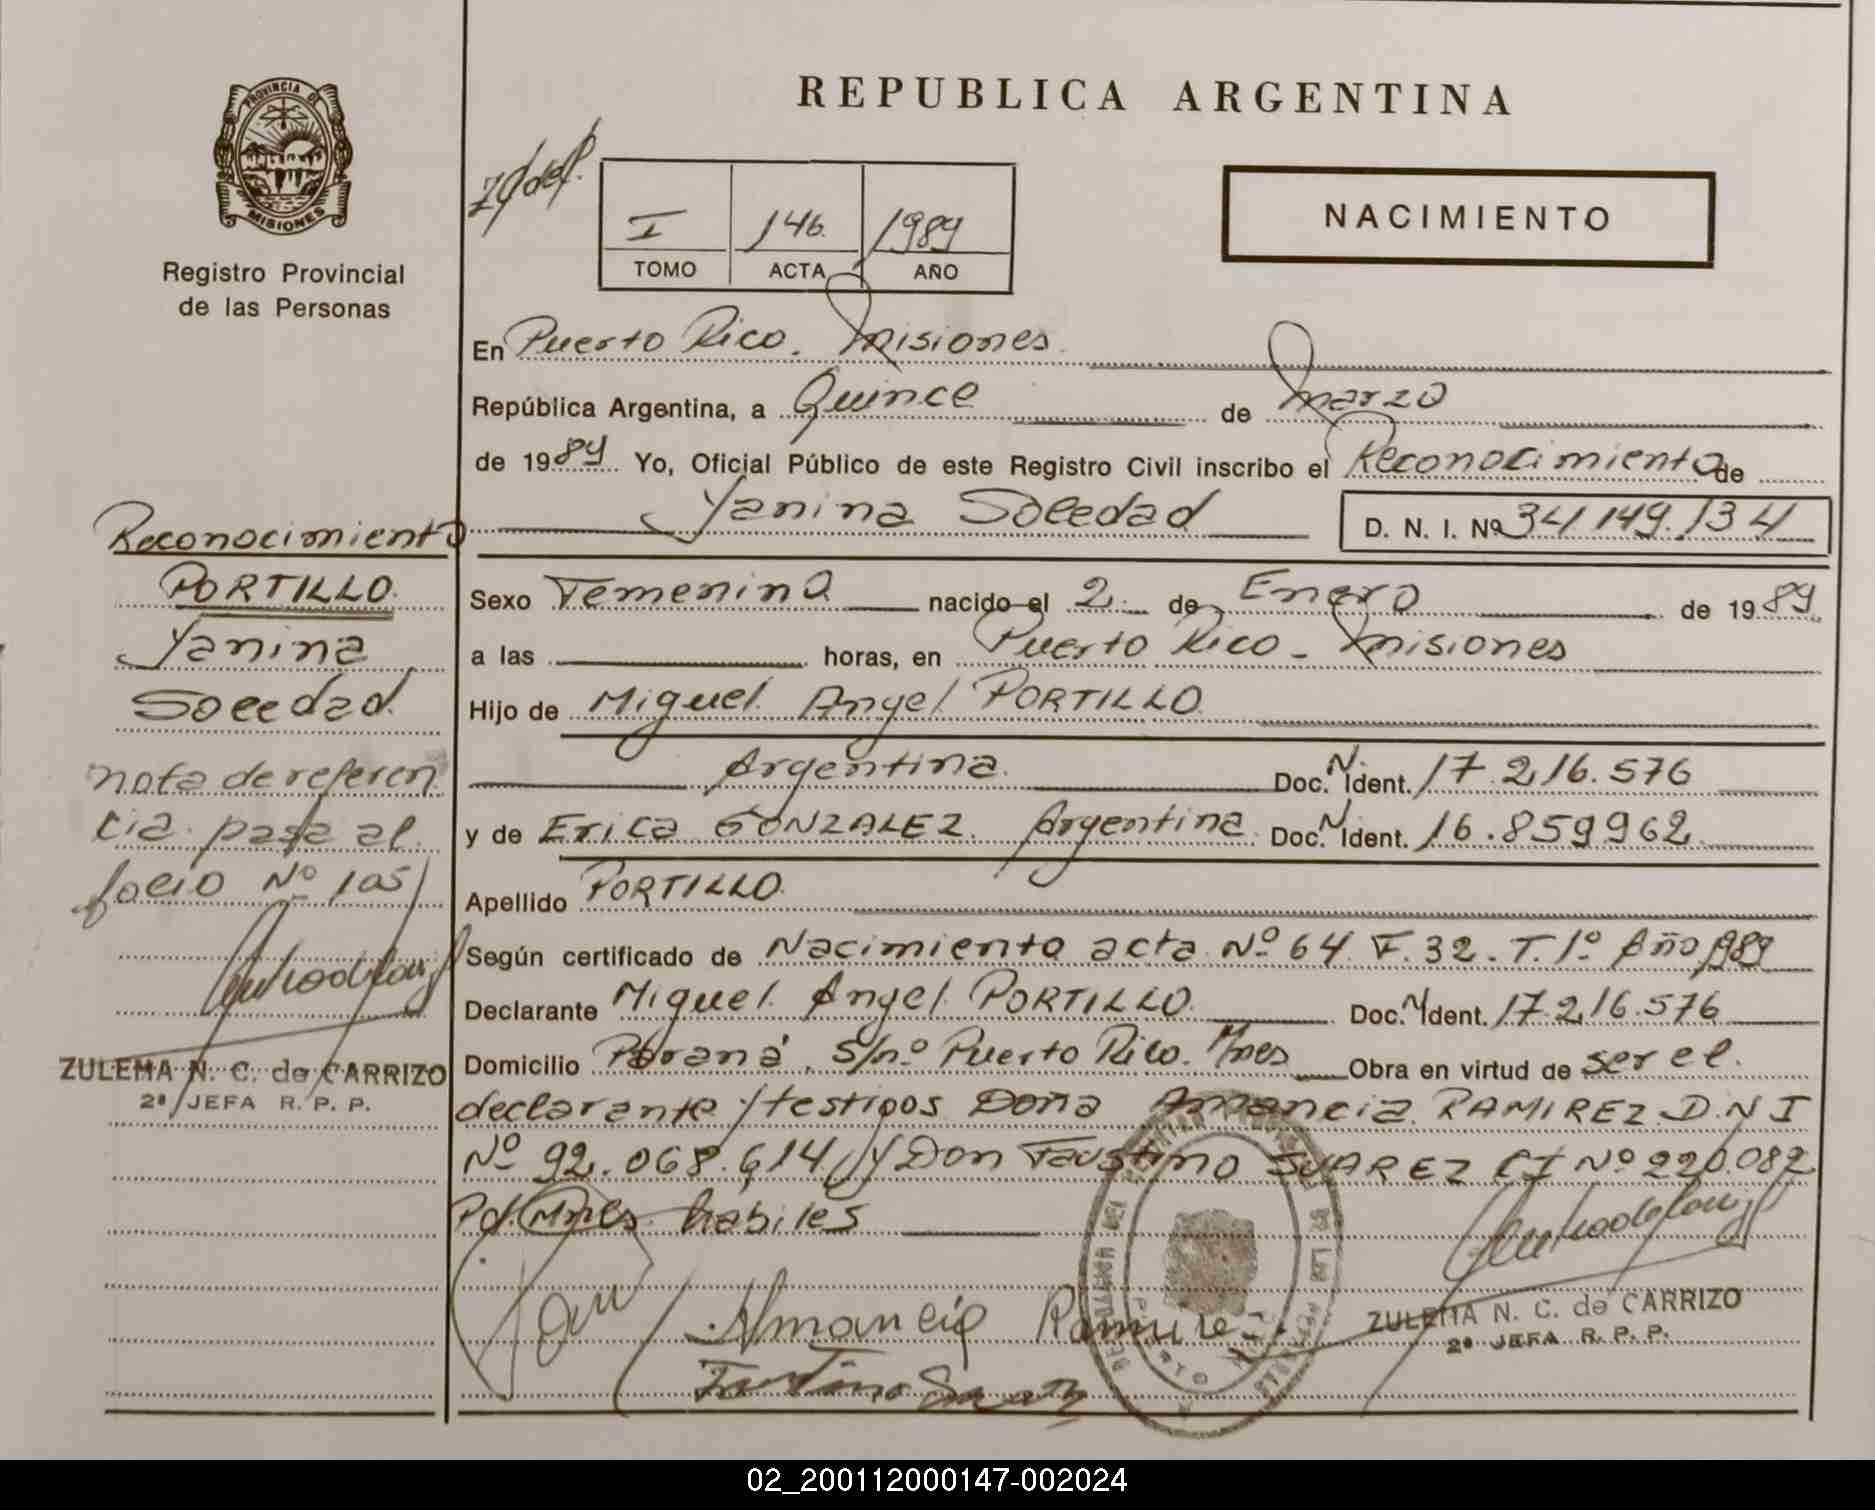 REPUBLICA ARGENTINA
PROVINCIA DE
MISIONES
Registro Provincial
de las Personas
I 146. 1989
TOMO ACTA AÑO
NACIMIENTO
En Puerto Rico. Misiones
República Argentina, a Quince de Marzo
de 1989 Yo, Oficial Público de este Registro Civil inscribo el Reconocimiento de
Yanina Soledad D. N. I. Nº 34.149.134
Sexo Femenino nacido el 2 de Enero de 1989
a las horas, en Puerto Rico - Misiones
Hijo de Miguel Angel PORTILLO
Argentina. Doc. N. Ident. 17.216.576
y de Erica GONZALEZ. Argentina Doc. N Ident. 16.859962
Apellido PORTILLO.
Según certificado de Nacimiento acta Nº 64 F. 32. T. 1º Año 1989
Declarante Miguel Angel PORTILLO. Doc. N Ident. 17.216.576
Domicilio Paraná, S/nº Puerto Rico. Mnes Obra en virtud de ser el
declarante y testigos Doña Amancia RAMIREZ D.N I
Nº 92.068.614 y Don Faustino SUAREZ CI Nº 220.082
Pol. Mnes. habiles
Amancia Ramirez
ZULEMA N. C. de CARRIZO
2ª JEFA R. P. P.
Reconocimiento
PORTILLO.
Yanina
Soledad
nota de referen
cia pasa al
folio Nº 105
ZULEMA N. C. de CARRIZO
2ª JEFA R. P. P.
02_200112000147-002024